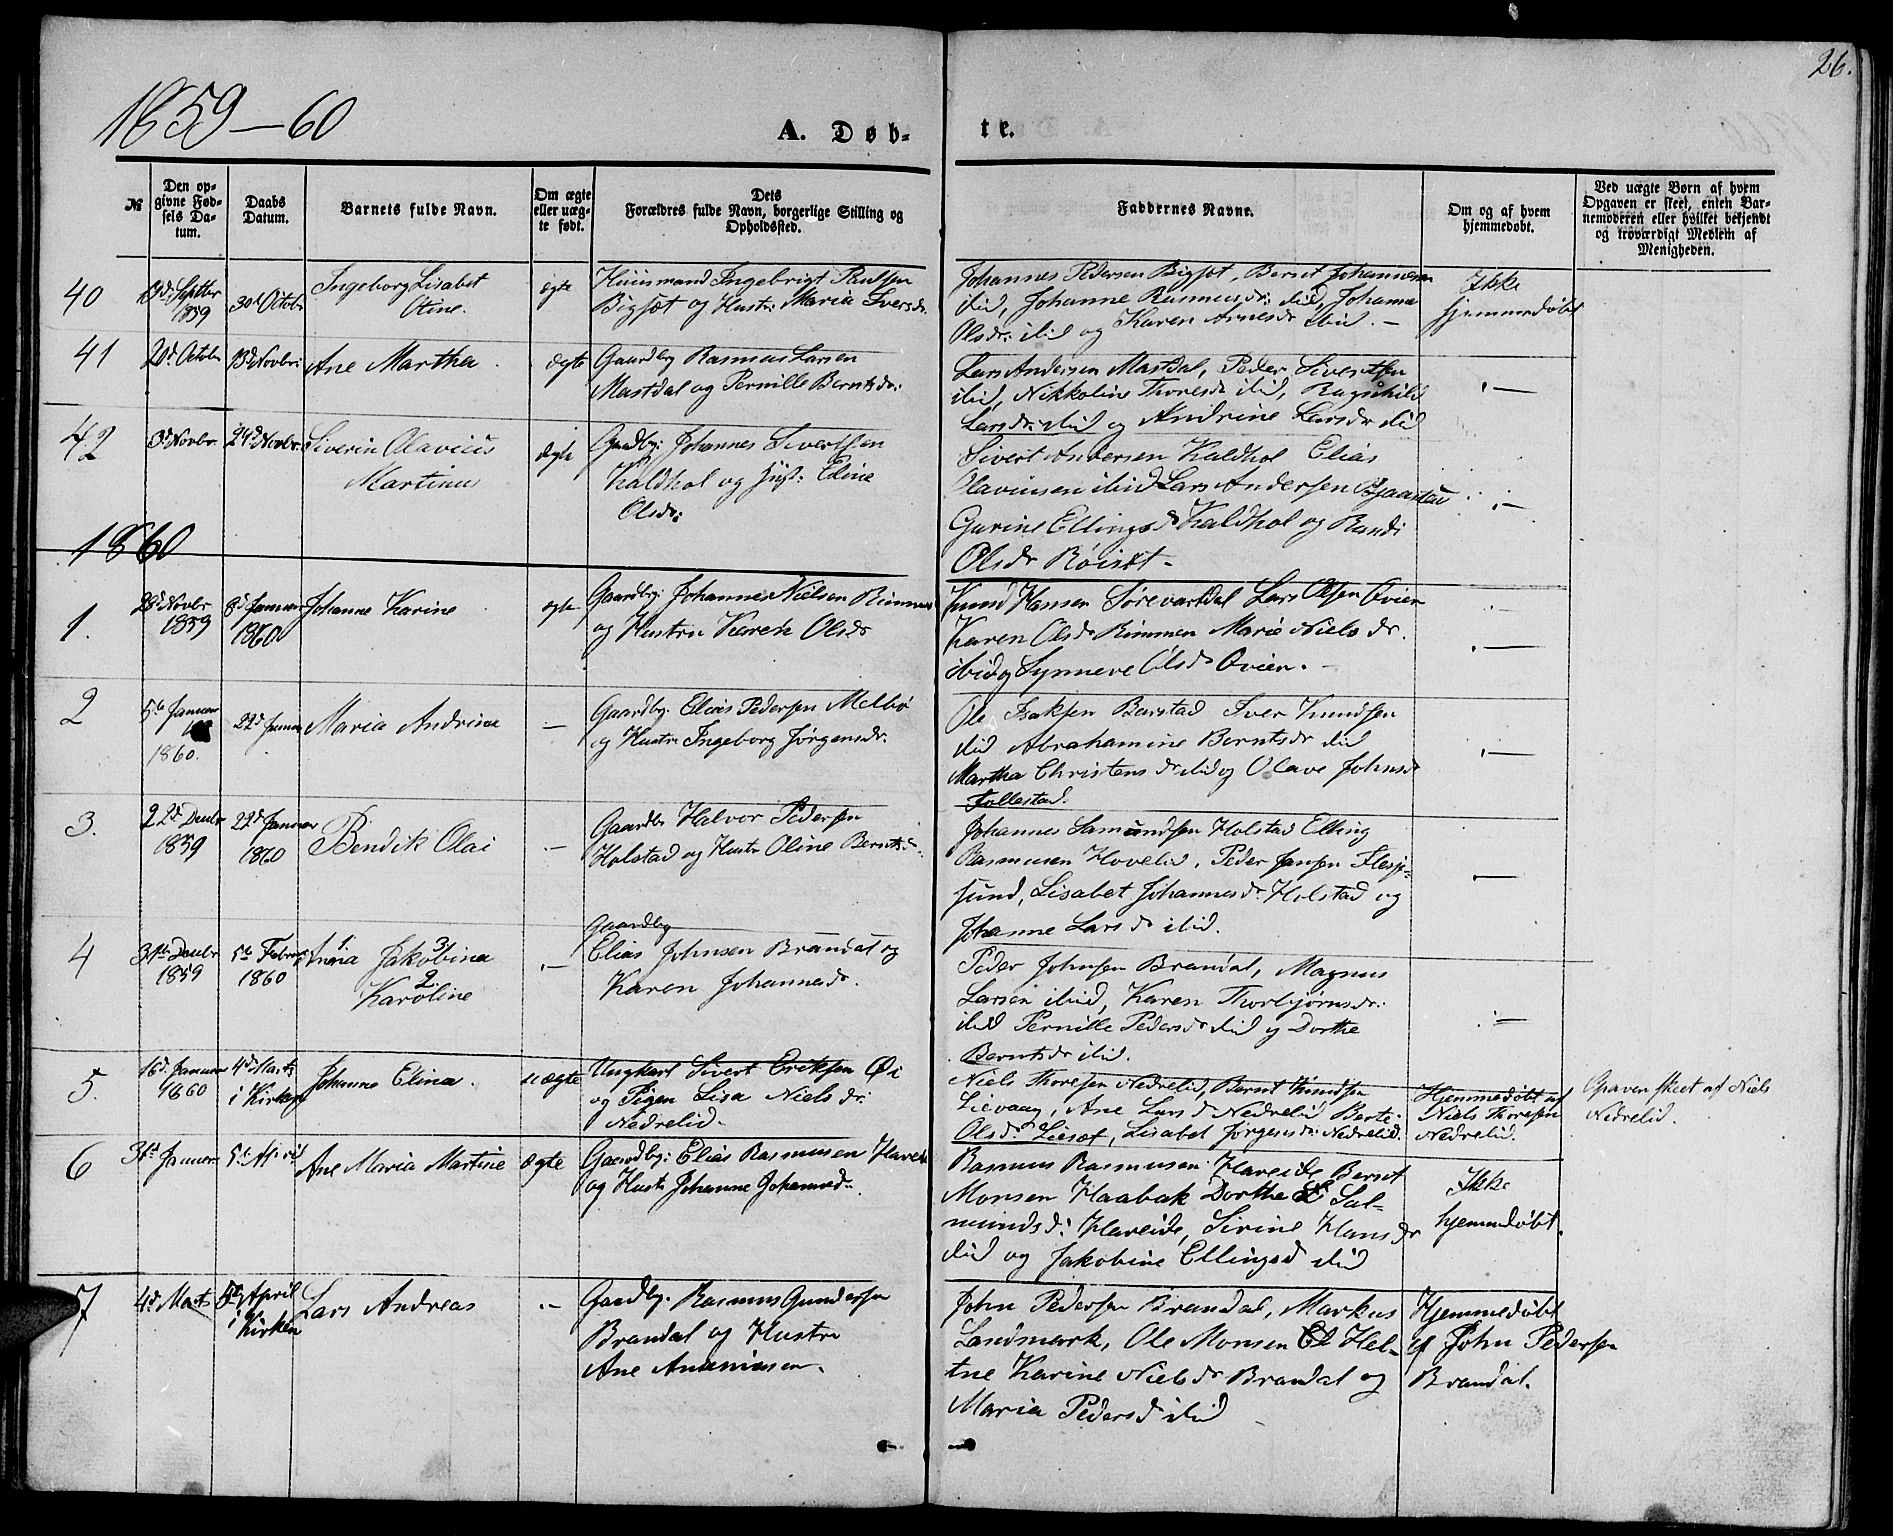 26.
1859-60
A. Døb-
te.
№
Den opgivne Fødsels Datum.
Daabs Datum.
Barnets fulde Navn.
Om ægte eller uægte født.
Dets Forældres fulde Navn, borgerlige Stilling og Opholdssted.
Faddernes Navne.
Om og af hvem hjemmedøbt.
Ved uægte Børn af hvem Opgaven er skeet, enten Barnemoderen eller hvilket bekjendt og troværdigt Medlem af Menigheden.
40
Septbr 1859
30d Octobr
Ingeborg Lisabet
Oline.
ægte
Huusmand Ingebrigt Paulsen
Bigset og Hustr: Maria Iversdr.
Johannes Pedersen Bigset, Bernt Johannesen
ibid, Johanne Rasmusdr: ibid, Johanne
Olsdr: ibid og Karen Arnesdr ibid. -
Ikke
hjemmedøbt
41
20d Octobr
13d Novbr:
Ane Martha
ægte
Gaardbr Rasmus Larsen
Mastdal og Pernille Berntsdr:
Lars Andersen Mastdal, Peder Sivertsen
ibid, Nikkoline Thoresdr ibid, Ragnhild
Larsdr: ibid og Andrine Larsdr ibid
42
3d Novbr
24d Novbr
Siverin Olavius
Martinus
ægte
Gaardbr: Johannes Sivertsen
Kaldhol og Hust: Eline
Olsdr:
Sivert Andersen Kaldhol Elias
Olavinsen ibid Lars Andersen Bjaastad
Gurine Ellingsd Kaldhol og Randi
Olsdr Röiset -
1860
1.
28d Novbr
1859
8d Januar
1860
Johanne Karine
ægte
Gaardbr: Johannes Nielsen Rimmen
og Hustru Karen Olsdr
Knud Hansen Sørevartdal Lars Olsen Øvien
Karen Olsdr Rimmen Marie Nielsdr.
ibid og Synneve Olsdr Øvien. -
2
5te Januar
1860.
22d Januar
Maria Andrine
Gaardbr: Elias Pedersen Melbø
og Hustr Ingeborg Jørgensdr.
Ole Isaksen Barstad Iver Knudsen
ibid Abrahamine Berntsdr ibid
Martha Christensdr ibid og Olave Johnsdr
Follestad.
3.
22d Decbr
1859
22d Januar
1860
Bendik Olai
Gaardbr Halvor Pedersen
Holstad og Hustr Oline Bernts
Johannes Samundsen Holstad Elling
Rasmusen Hovelid, Peder Jansen Flesje-
sund, Lisabet Johannesdr. Holstad og
Johanne Larsdr ibid.
4
31te Decbr
1859
5te Februar
1860
1.
Anna
3
Jakobine
2.
Karoline
Gaardbr
Elias Johnsen Brandal og
Karen Johannesdr.
Peder Johnsen Brandal, Magnus
Larsen ibid, Karen Thorbjørnsdr:
ibid Pernille Pedersdr ibid og Dorthe
Berntsdr ibid.
5.
16d Januar
1860
4d Marts
i Kirken
Johanne Elina.
uægte
Ungkarl Sivert Eriksen Øi
og Pigen Lisa Nielsdr:
Nedrelid.
Niels Thoresen Nedrelid, Bernt Knudsen
Lievaag, Ane Larsd Nedrelid Berte
Olsdr Lieset, Lisabet Jørgensdr: Nedrelid.
Hjemmedøbt af
Niels Thoresen
Nedrelid.
Opaven skeet af Niels
Nedrelid.
6
31d Januar
5te April
Ane Maria Martine
ægte
Gaardbr: Elias Rasmusen Hareide
og Hustr Johanne Johannesdr.
Rasmus Rasmusen Hareide Bernt
Monsen Haabak Dorthe Sal-
mundsd: Hareide, Sirine Hansdr
ibid og Jakobine Ellingsd ibid
Ikke
hjemmedøbt.
7
4d Marts
5te April
i Kirken
Lars Andreas
Gaardbr. Rasmus Gundersen
Brandal og Hustru
Ane Ananiasen.
John Pedersen Brandal, Markus
Landmark, Ole Monsen Hel-
tne Karine Nielsdr Brandal og
Maria Pedersd ibid
Hjemmedøbt
af John Pedersen
Brandal.